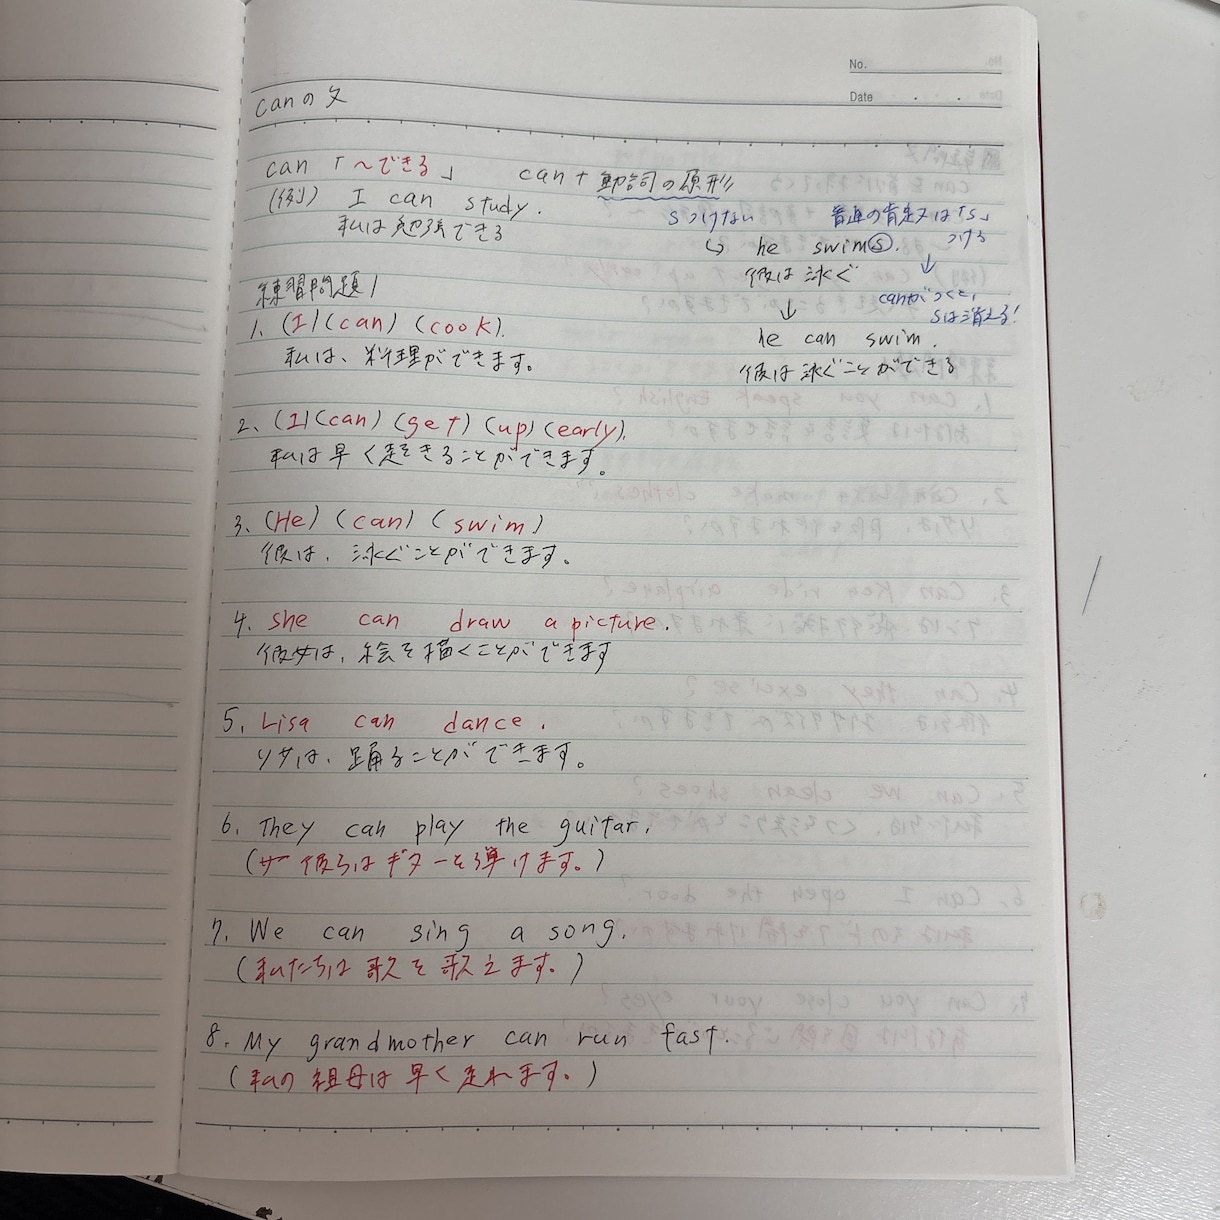 No.
Date
canの文
can 「~できる」 can+動詞の原形
(例) I can study.
私は勉強できる
sつけない
普通の肯定文は「s」
つける
↳ he swims.
彼は泳ぐ
↓
canがつくと、
sは消える!
↓
he can swim.
彼は泳ぐことができる
練習問題1
1. (I)(can)(cook).
私は、料理ができます。
2. (I)(can)(get)(up)(early).
私は早く起きることができます。
3. (He)(can)(swim)
彼は、泳ぐことができます。
4. she can draw a picture.
彼女は、絵を描くことができます
5. Lisa can dance.
リサは、踊ることができます。
6. They can play the guitar.
(彼らはギターを弾けます。)
7. We can sing a song.
(私たちは歌を歌えます。)
8. My grandmother can run fast.
(私の祖母は早く走れます。)